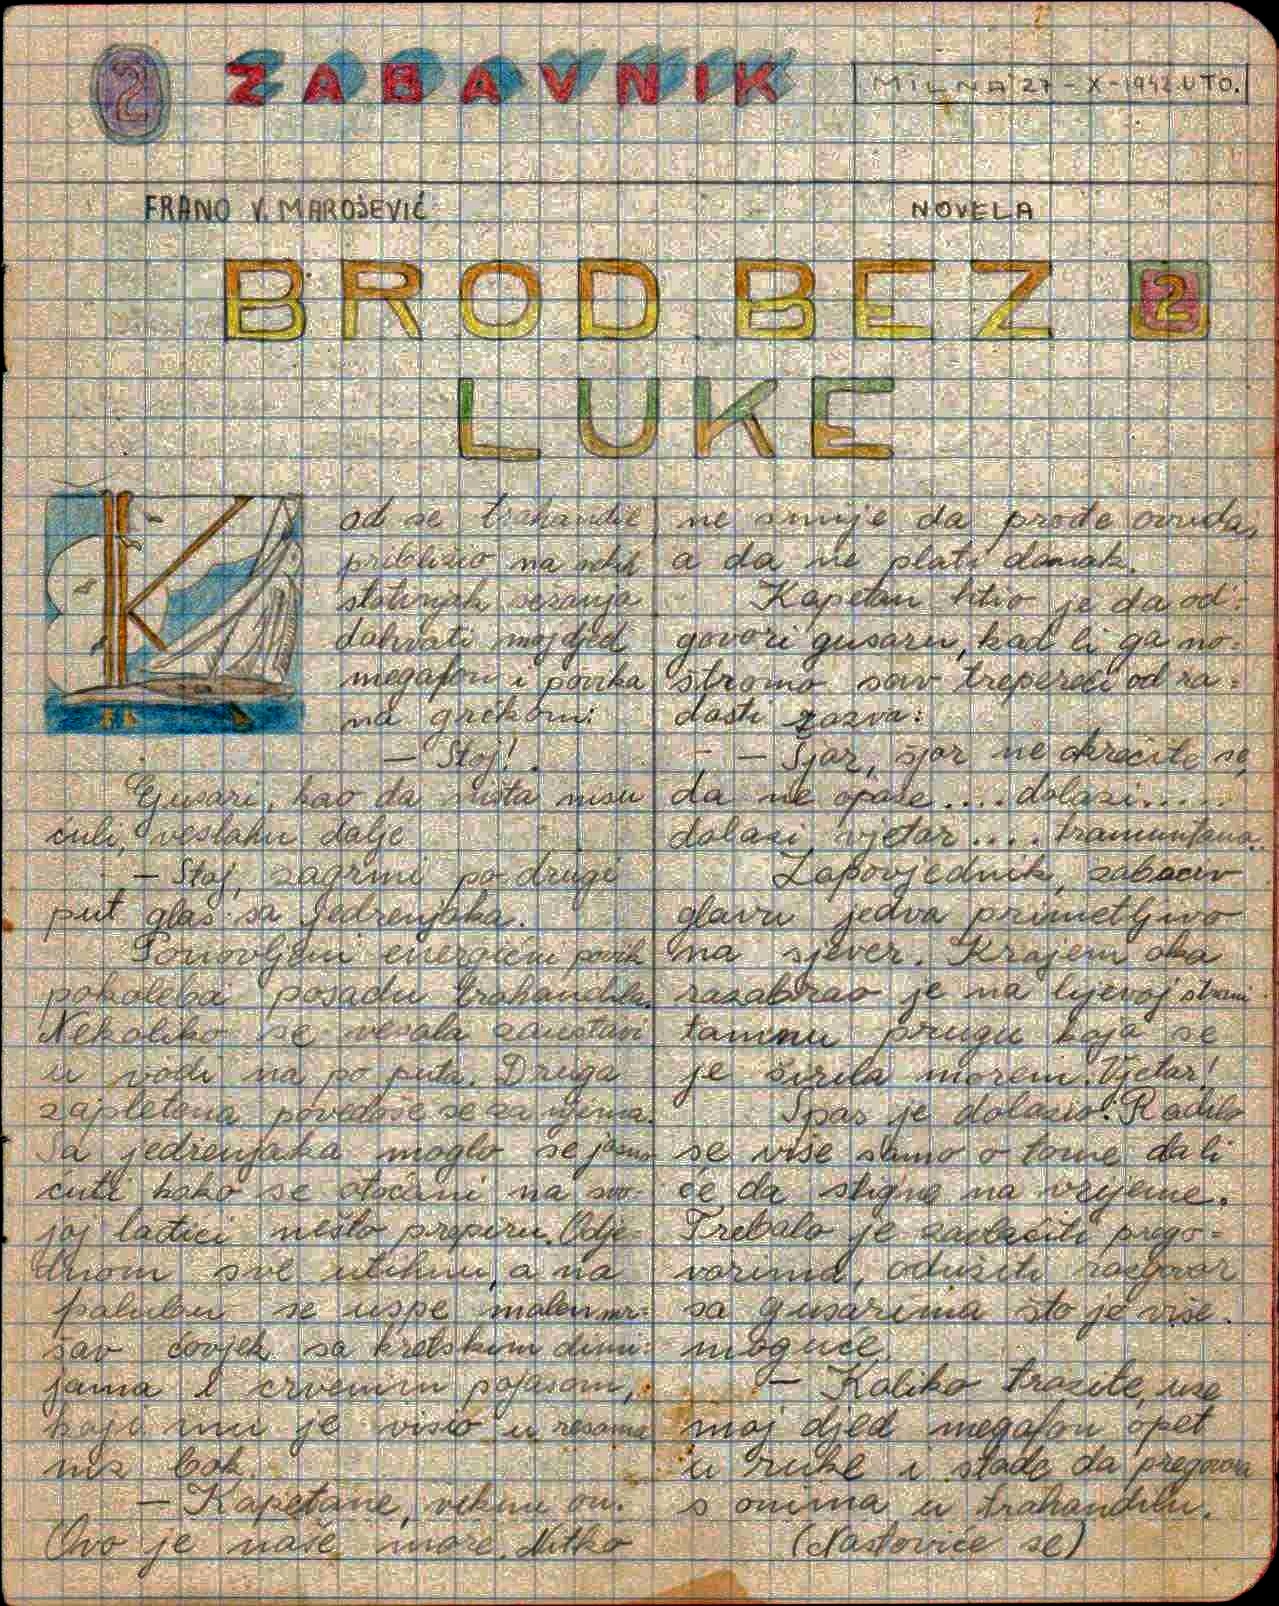 2 ZABAVNIK
MILNA 27-X-1942. UTO.
FRANO V. MAROŠEVIĆ
NOVELA
BROD BEZ 2
LUKE
Kod se trahandil
približio na nekih
stotinjak sežanja
dohvati moj djed
megafon i povika
na grčkom:
— Stoj!.
Gusari, kao da ništa nisu
čuli, veslahu dalje.
— Stoj, zagrmi po drugi
put glas sa jedrenjaka.
Ponovljeni energični povik
pokoleba posadu trahandila.
Nekoliko se vesala zaustavi
u vodi na po puta. Druga
zapletena povedoše se za njima.
Sa jedrenjaka moglo se jasno
čuti kako se otočani na svo-
joj lađici nešto prepiru. Odje-
dnom sve utihnu, a na
palubu se uspe malen mr-
šav čovjek sa kretskim dimi-
jama i crvenim pojasom,
koji mu je visio u resama
niz bok.
— Kapetane, viknu on.
Ovo je naše more. Nitko
ne smije da prođe ovuda,
a da ne plati danak.
Kapetan htio je da od-
govori gusaru, kad li ga no-
stromo sav trepereći od ra-
dosti zazva:
— — Šjor, šjor ne okrećite se,
da ne opaze.... dolazi.....
dolazi vjetar.... tramuntana..
Zapovjednik, zabaciv
glavu jedva primetljivo
na sjever. Krajem oka
razabrao je na lijevoj strani
tamnu prugu koja se
je širila morem. Vjetar!
Spas je dolazio. Radilo
se više samo o tome da li
će da stigne na vrijeme.
Trebalo je zavlačiti prego-
vorima, odužiti razgovor
sa gusarima što je više
moguće.
— Koliko tražite, uze
moj djed megafon opet
u ruke i stade da pregovara
s onima u trahandilu.
(Nastoviće se)